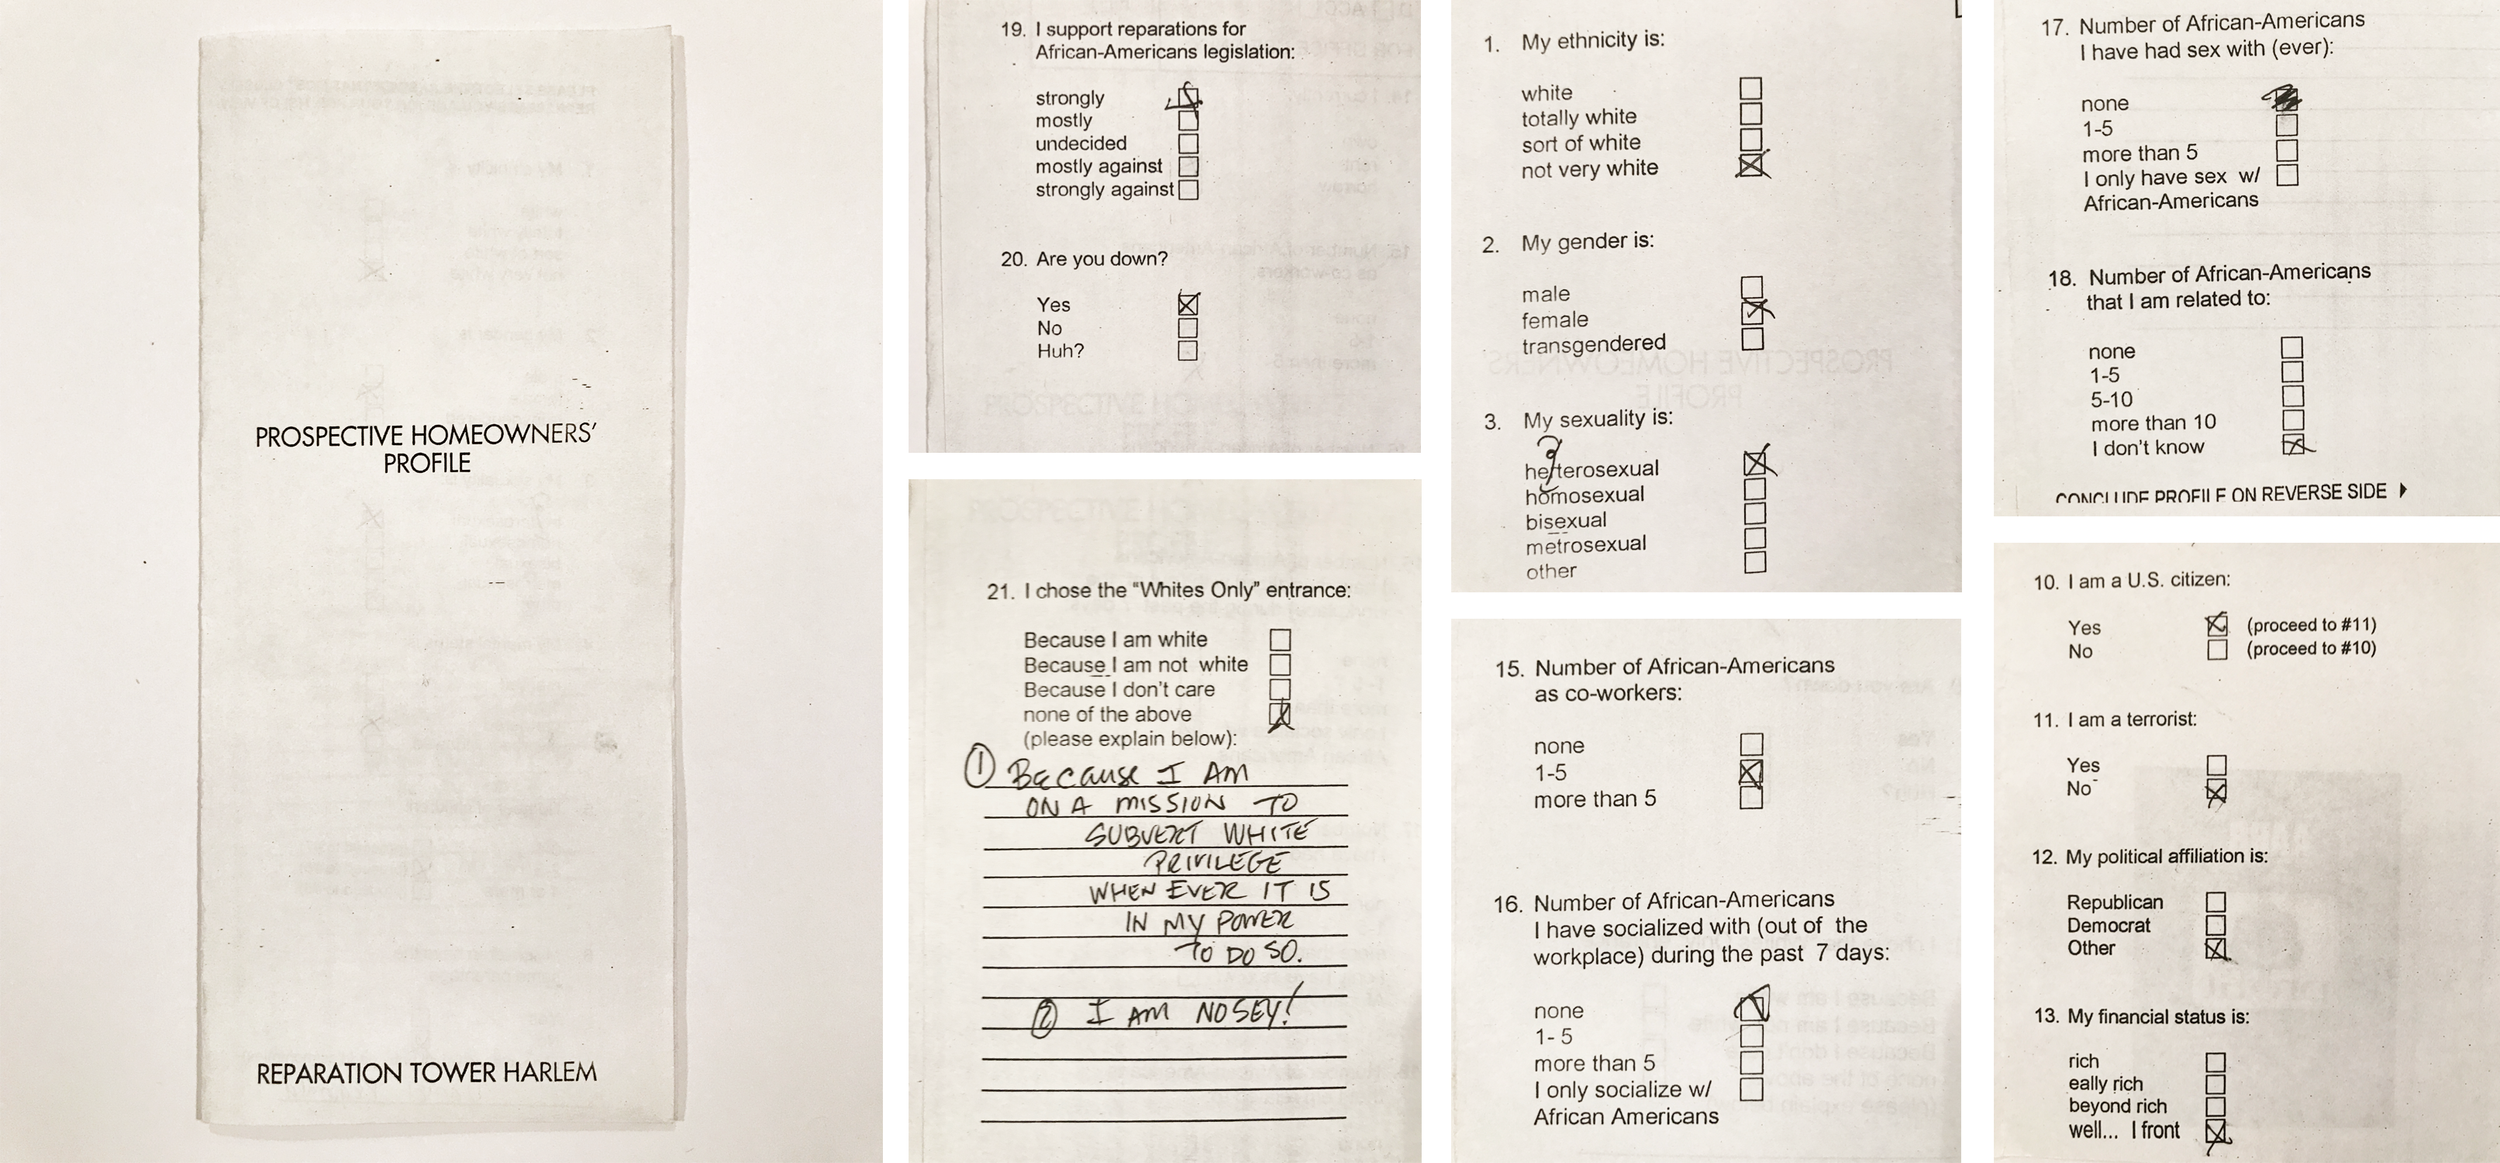 PROSPECTIVE HOMEOWNERS'
PROFILE
REPARATION TOWER HARLEM
19. I support reparations for
African-Americans legislation:
strongly
mostly
undecided
mostly against
strongly against
20. Are you down?
Yes
No
Huh?
21. I chose the "Whites Only" entrance:
Because I am white
Because I am not white
Because I don't care
none of the above
(please explain below):
① BECAUSE I AM
ON A MISSION TO
SUBVERT WHITE
PRIVILEGE
WHEN EVER IT IS
IN MY POWER
TO DO SO.
② I AM NOSEY!
1. My ethnicity is:
white
totally white
sort of white
not very white
2. My gender is:
male
female
transgendered
3. My sexuality is:
hefterosexual
homosexual
bisexual
metrosexual
other
15. Number of African-Americans
as co-workers:
none
1-5
more than 5
16. Number of African-Americans
I have socialized with (out of the
workplace) during the past 7 days:
none
1- 5
more than 5
I only socialize w/
African Americans
17. Number of African-Americans
I have had sex with (ever):
none
1-5
more than 5
I only have sex w/
African-Americans
18. Number of African-Americans
that I am related to:
none
1-5
5-10
more than 10
I don't know
CONCLUDE PROFILE ON REVERSE SIDE
10. I am a U.S. citizen:
Yes (proceed to #11)
No (proceed to #10)
11. I am a terrorist:
Yes
No
12. My political affiliation is:
Republican
Democrat
Other
13. My financial status is:
rich
eally rich
beyond rich
well... I front